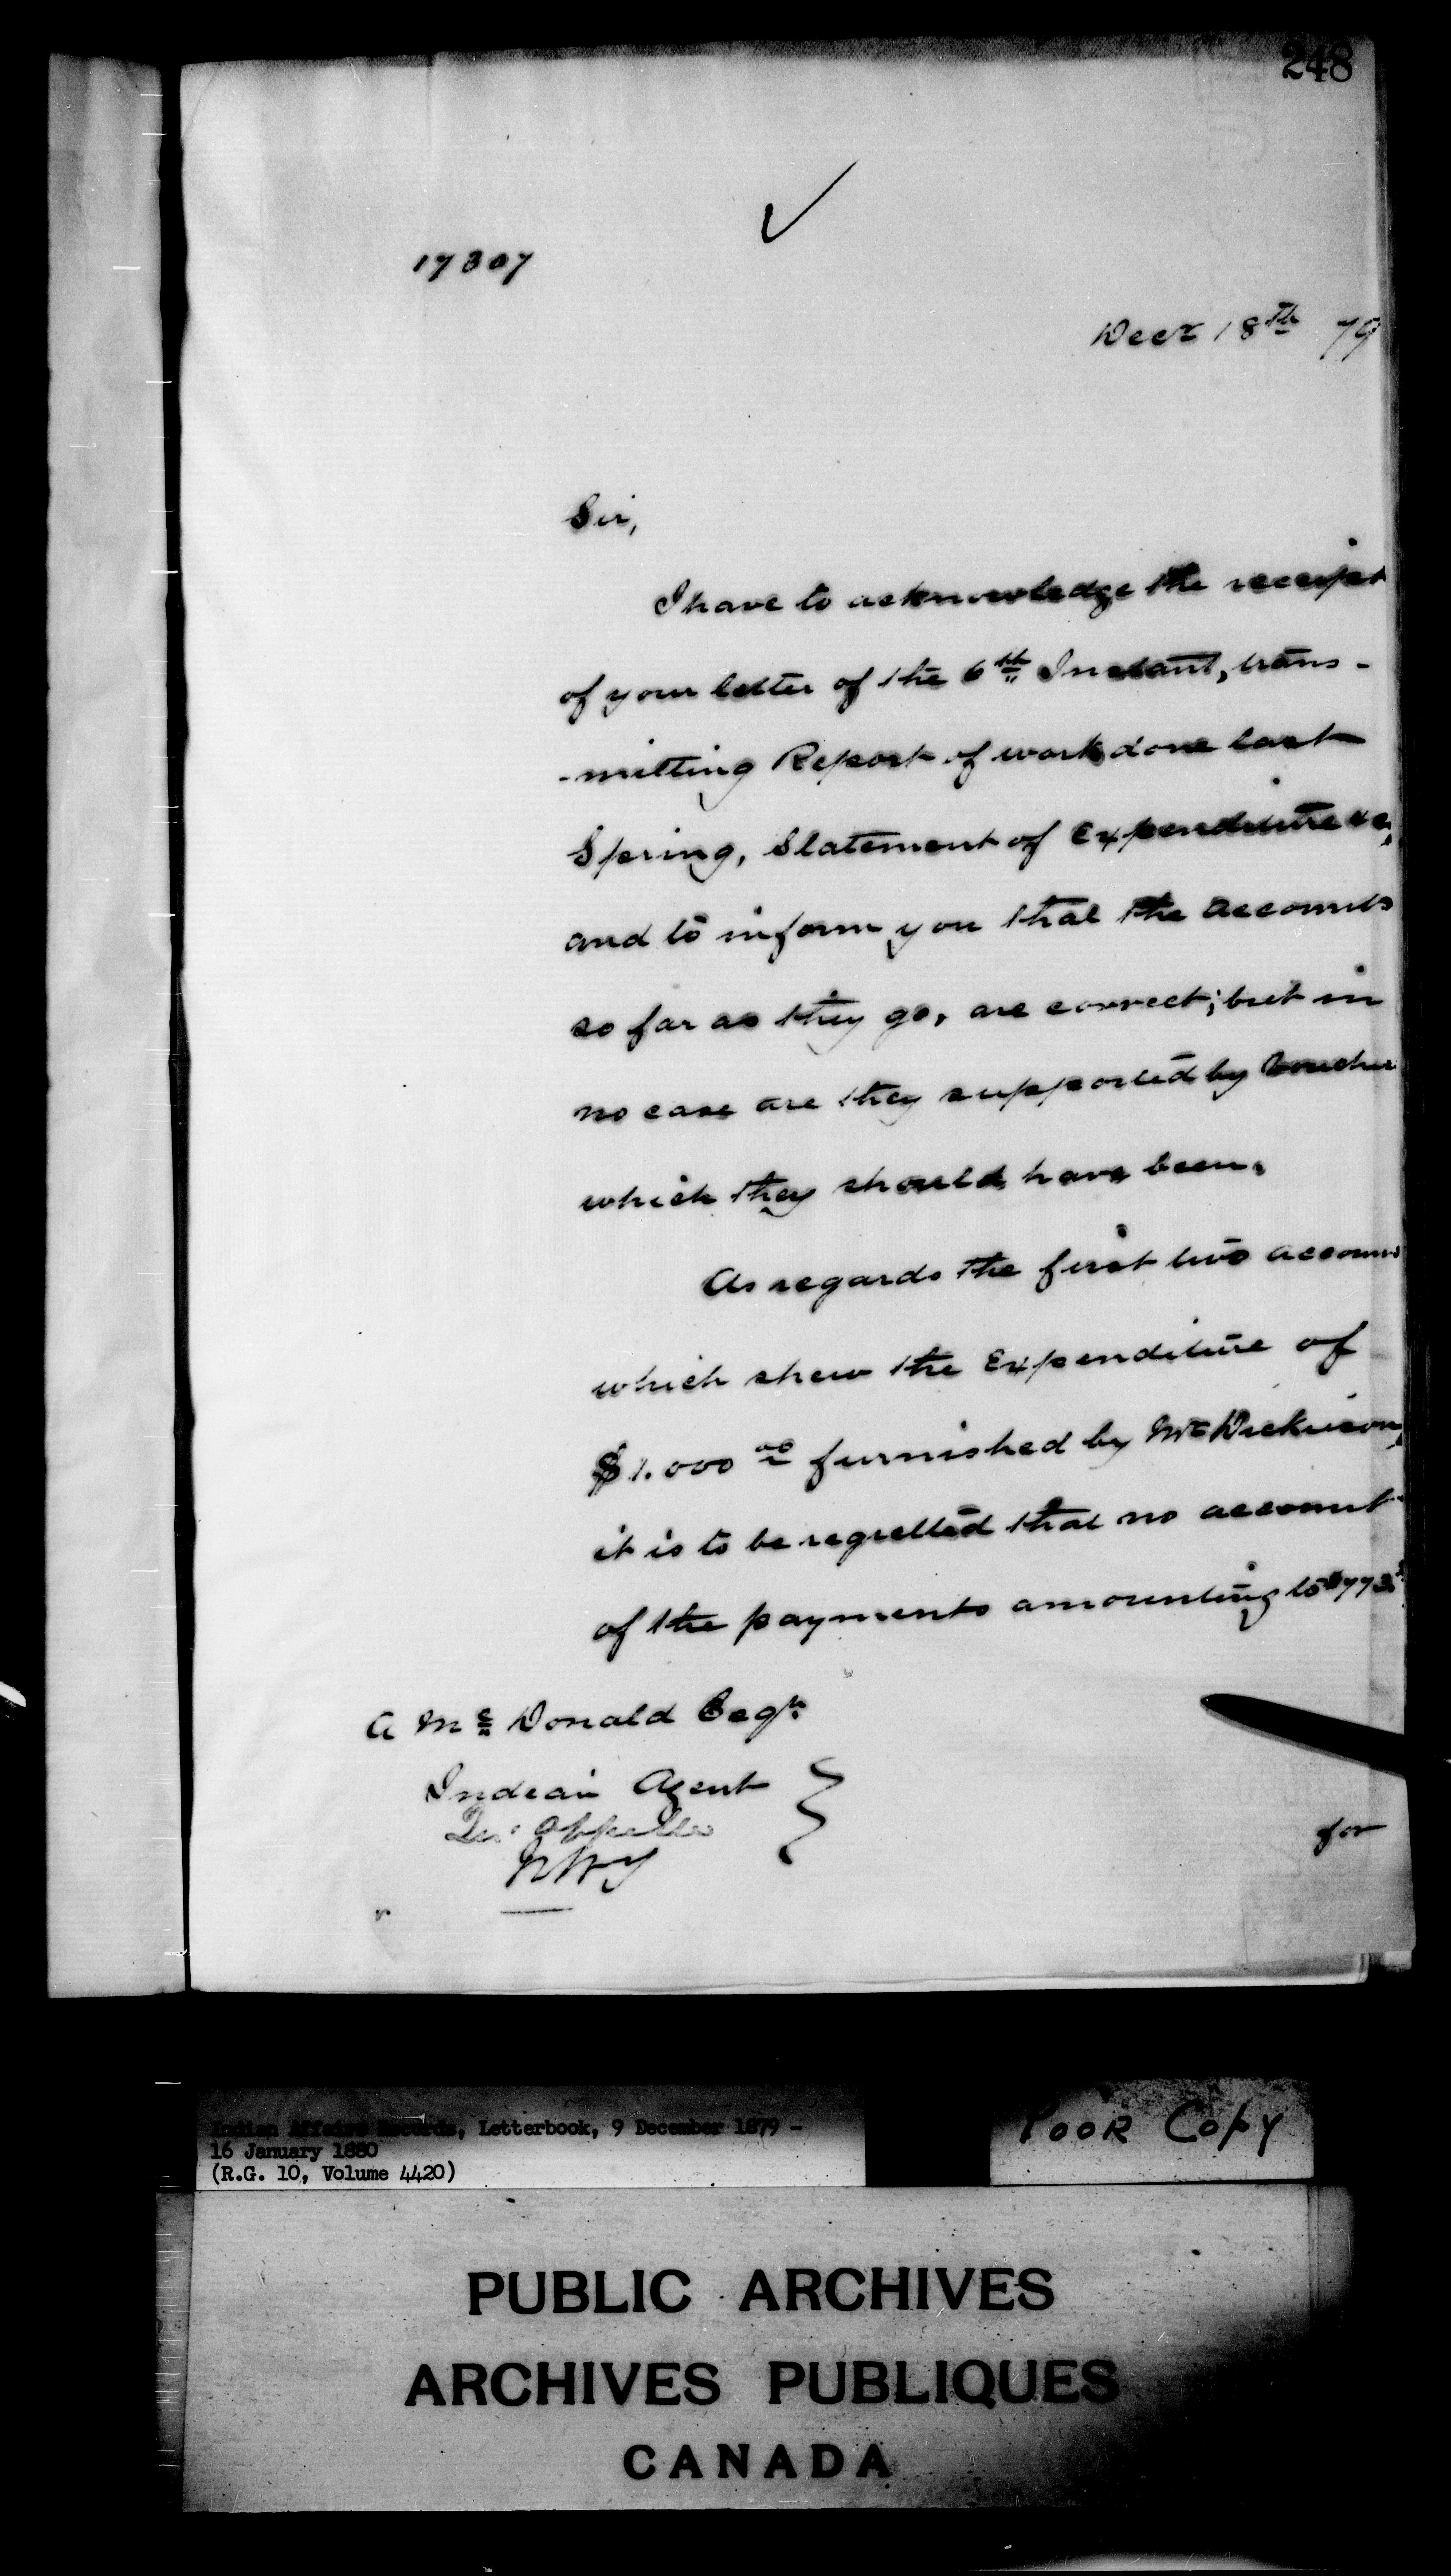 248
17307
Decr 18th 79
Sir,
I have to acknowledge the receipt
of your letter of the 6th Instant, trans-
-mitting Report of work done last
Spring, Statement of Expenditure &c,
and to inform you that the accounts
so far as they go, are correct; but in
no case are they supported by Voucher
which they should have been.
As regards the first two accoun
which shew the Expenditure of
$1.000 00 furnished by Mr Dickieson,
it is to be regretted that no account
of the payments amounting to $773
A Mc Donald Esqr
Indian Agent
Qu'Appelle
NWT
for
Indian Affairs Records, Letterbook, 9 December 1879 -
16 January 1880
(R.G. 10, Volume 4420)
POOR COPY
PUBLIC ARCHIVES
ARCHIVES PUBLIQUES
CANADA